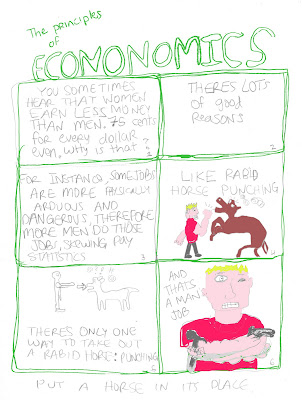 The principles
of
ECONONOMICS
YOU SOMETIMES
HEAR THAT WOMEN
EARN LESS MONEY
THAN MEN. 75 cents
for every dollar
even. WHY is that?
1
THERES LOTS
of good
REASONS
2
FOR INSTANCE, SOME JOBS
ARE MORE PHYSICALLY
ARDUOUS AND
DANGEROUS, THEREFORE
MORE MEN DO THOSE
JOBS, SKEWING PAY
STATISTICS
3
LIKE RABID
HORSE PUNCHING
THERES ONLY ONE
WAY TO TAKE OUT
A RABID HORE: PUNCHING
AND
THATS
A MAN
JOB
6
PUT A HORSE IN ITS PLACE